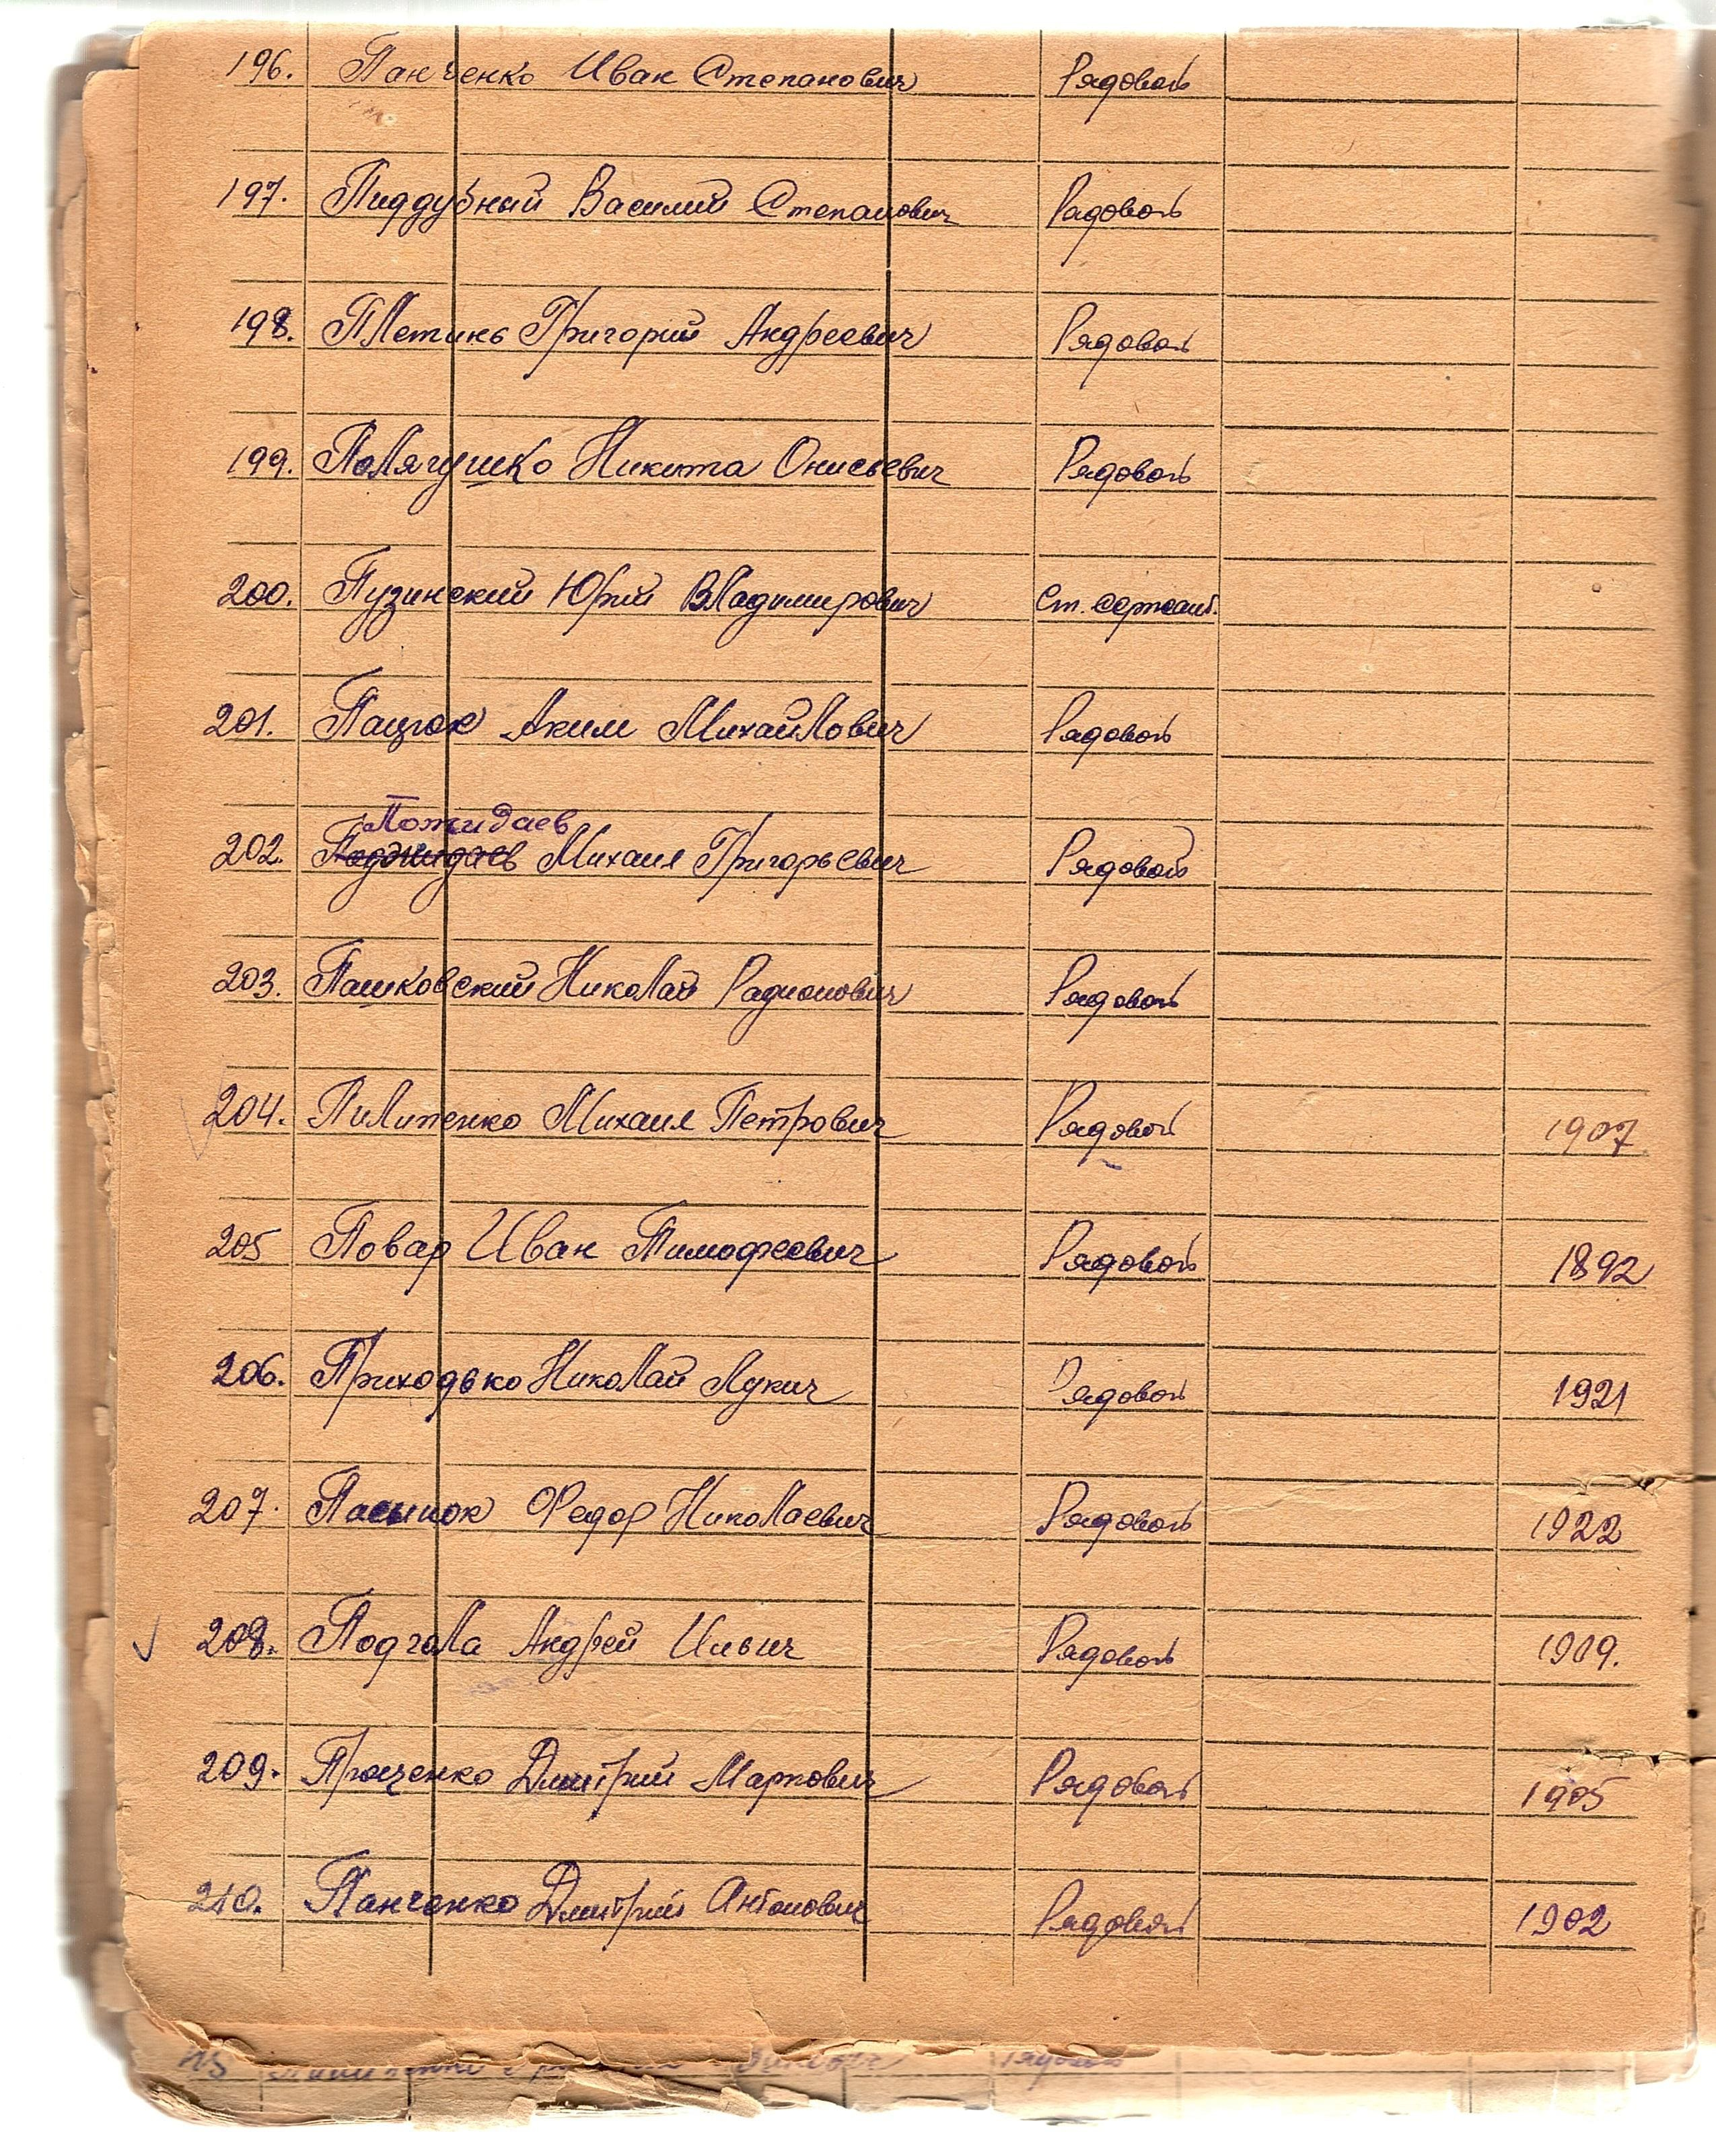 196. Панченко Иван Степанович Рядовой
197. Пиддубный Василий Степанович Рядовой
198. Плетинь Григорий Андреевич Рядовой
199. Полягушко Никита Онисьевич Рядовой
200. Пузинский Юрий Владимирович Ст. сержант.
201. Пацюк Аким Михайлович Рядовой
Пожидаев
202. Поджидаев Михаил Григорьевич Рядовой
203. Пашковский Николай Радионович Рядовой
204. Пилипенко Михаил Петрович Рядовой 1907
205 Повар Иван Тимофеевич Рядовой 1892
206. Приходько Николай Лукич Рядовой 1921
207. Пасынок Федор Николаевич Рядовой 1922
208. Подгола Андрей Ильич Рядовой 1909.
209. Дмитрий Маркович Рядовой 1905
210. Панченко Дмитрий Антонович Рядовой 1902
Рядовой